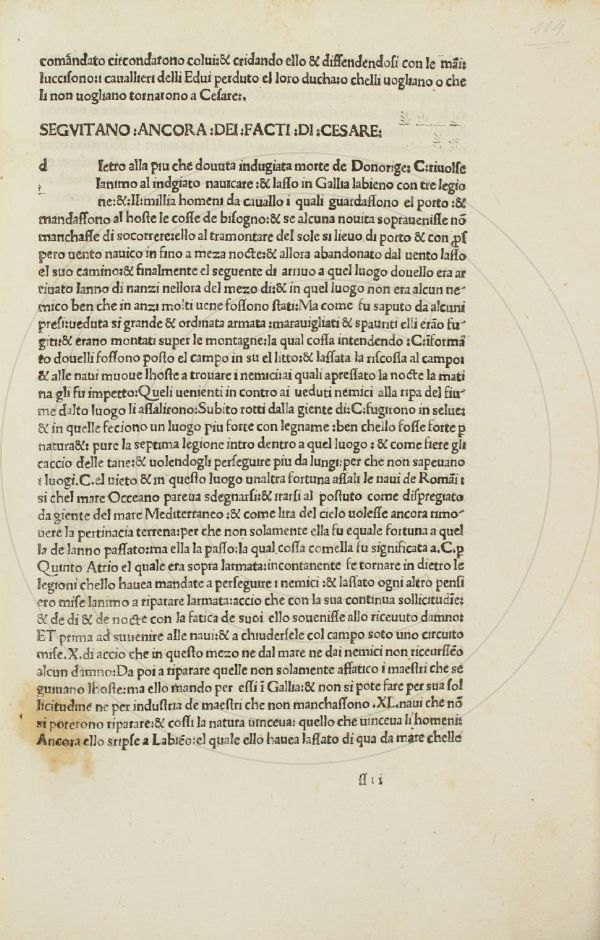 114
comādato circondarono colui:& cridando ello & diffendendosi con le māi:
luccisono:i cauallieri delli Edui perduto el loro duchato chelli uogliano o che
li non uogliano tornarono a Cesare:.
SEGVITANO :ANCORA :DEI :FACTI :DI :CESARE:
d Ietro alla piu che douuta indugiata morte de Donorige: C:riuolse
lanimo al indgiato nauicare :& lasso in Gallia labieno con tre legio
ne:& II:millia homeni da cauallo i quali guardassono el porto :&
mandassono al hoste le cosse de bisogno:& se alcuna nouita soprauenisse nō
manchasse di socorrere:ello al tramontare del sole si lieuo di porto & con ꝓs
pero uento nauico in fino a meza nocte:& allora abandonato dal uento lasso
el suo camino:& finalmente el seguente di arriuo a quel luogo douello era ar
riuato lanno di nanzi nellora del mezo di:& in quel luogo non era alcun ne
mico ben che in anzi molti uene fossono stati:Ma come fu saputo da alcuni
presi:ueduta si grande & ordinata armata :marauigliati & spaunti elli erāo fu
giti:& erano montati super le montagne:la qual cossa intendendo :C:iformā
to douelli fossono posto el campo in su el litto:& lassata la riscossa al campo:
& alle naui muoue lhoste a trouare i nemici:ai quali apressato la nocte la mati
na gli fu impetto:Queli uenienti in contro ai ueduti nemici alla ripa del fiu
me dalto luogo li assalirono:Subito rotti dalla giente di:C:fugirono in selue:
& in quelle feciono un luogo piu forte con legname :ben chello fosse forte p
natura&: pure la septima legione intro dentro a quel luogo : & come fiere gli
caccio delle tane:& uolendogli perseguire piu da lungi:per che non sapeuano
i luogi.C.el uieto & in questo luogo unaltra fortuna assali le naui de Romāi :
si chel mare Occeano pareua sdegnarsi:& irarsi al postuto come dispregiato
da giente del mare Mediterraneo :& come lira del cielo uolesse ancora rimo
uere la pertinacia terrena:per che non solamente ella fu equale fortuna a quel
la de lanno passato:ma ella la passo:la qual cossa comella fu significata a.C.p
Quinto Atrio el quale era sopra larmata:incontanente fe tornare in dietro le
legioni chello hauea mandate a perseguire i nemici :& lassato ogni altro pensi
ero mise lanimo a riparare larmata:accio che con la sua continua sollicitudīe:
& de di & de nocte con la fatica de suoi ello souenisse allo riceuuto damno:
ET prima ad suuenire alle naui:& a chiudersele col campo soto uno circuito
mise.X.di accio che in questo mezo ne dal mare ne dai nemici non riceurssēo
alcun damno:Da poi a riparare quelle non solamente affatico i maestri che se
guiuano lhoste:ma ello mando per essi ī Gallia:& non si pote fare per sua sol
licitudine ne per industria de maestri che non manchassono .XL.naui che nō
si poterono riparare:& cossi la natura uinceua: quello che uinceua li homeni:
Ancora ello stripse a Labiēo:el quale ello hauea lassato di qua da mare chello
ss i i